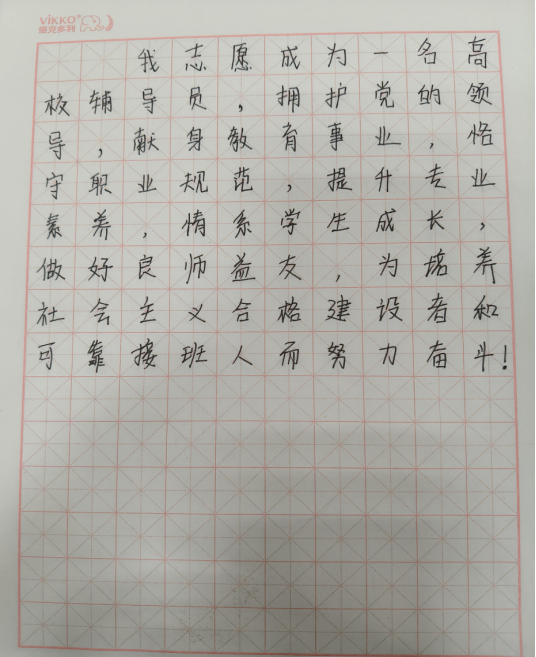 VIKKO®
维克多利
我志愿成为一名高
校辅导员，拥护党的领
导，献身教育事业，恪
守职业规范，提升专业
素养，情系学生成长，
做好良师益友，为培养
社会主义合格建设者和
可靠接班人而努力奋斗！